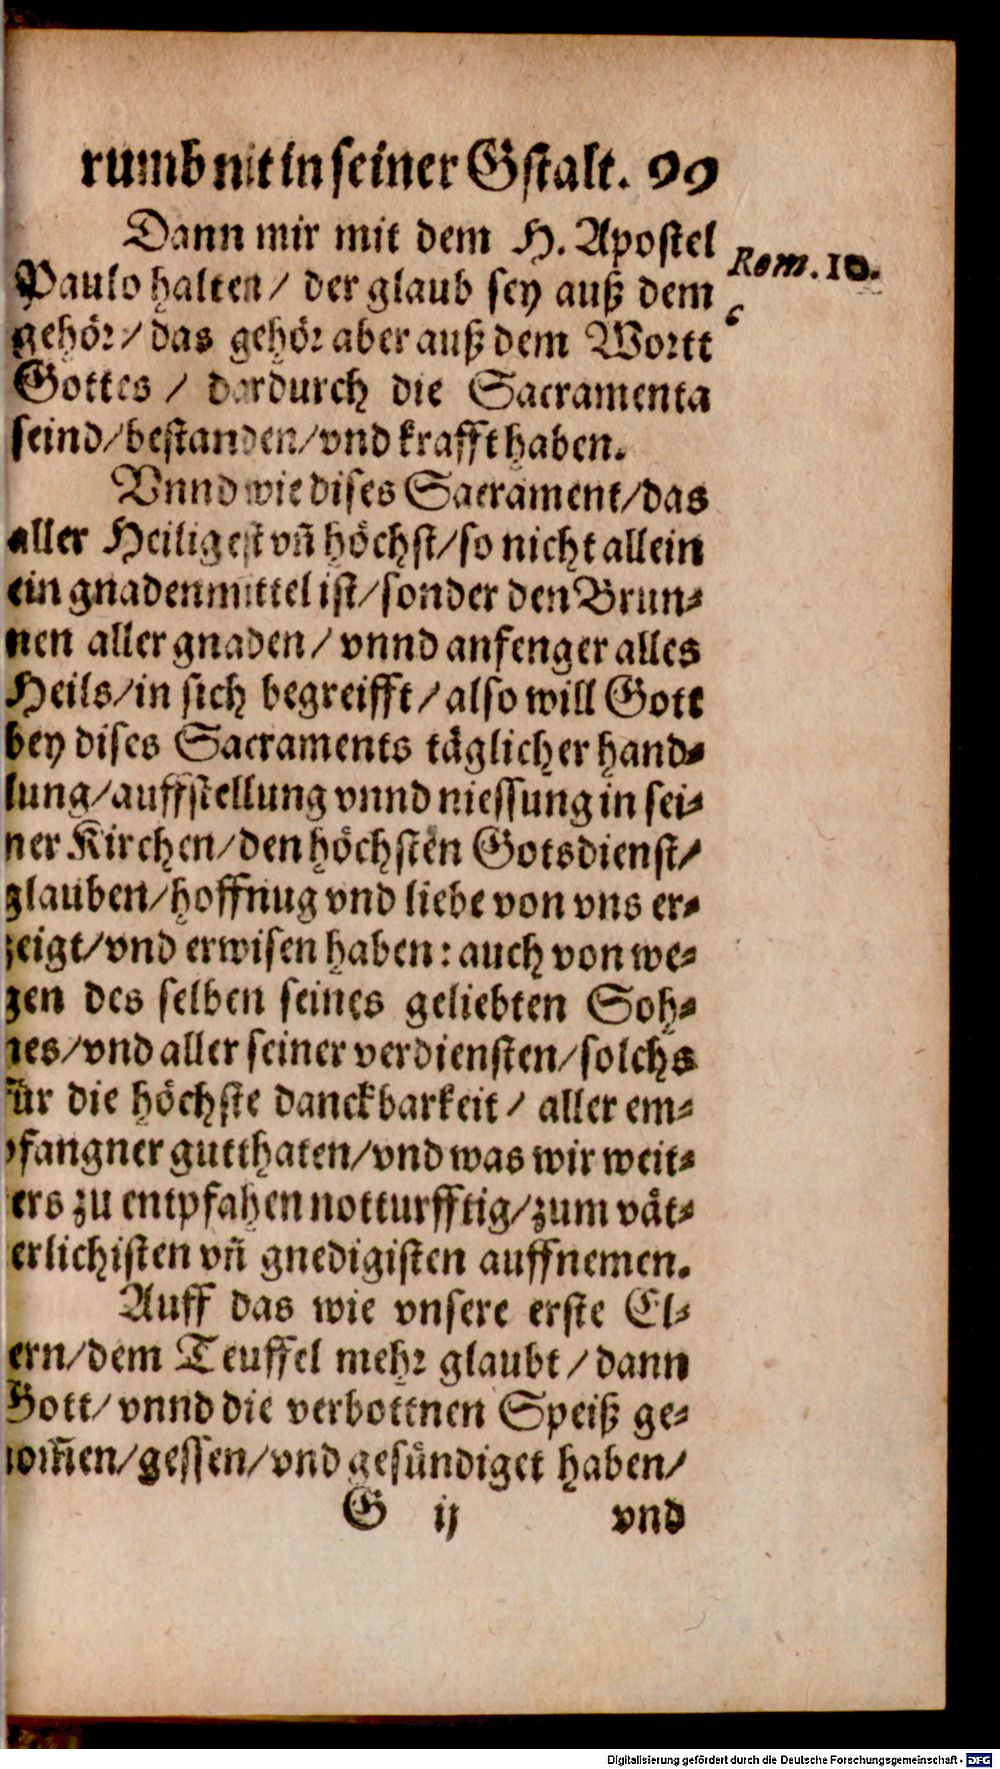 rumb nit in seiner Gstalt. 99
Dann mir mit dem H. Apostel
Rom. 10.
Paulo halten/ der glaub sey auß dem
c
gehör/ das gehör aber auß dem Wortt
Gottes / dardurch die Sacramenta
seind/bestanden/vnd krafft haben.
Vnnd wie dises Sacrament/das
aller Heiligest vñ höchst/so nicht allein
ein gnadenmittel ist/sonder den Brun⸗
nen aller gnaden/ vnnd anfenger alles
Heils/in sich begreifft/also will Gott
bey dises Sacraments täglicher hand⸗
lung/auffstellung vnnd niessung in sei⸗
ner Kirchen/den höchsten Gotsdienst/
glauben/hoffnug vnd liebe von vns er⸗
zeigt/vnd erwisen haben: auch von we⸗
gen des selben seines geliebten Soh⸗
nes/vnd aller seiner verdiensten/solchs
für die höchste danckbarkeit/ aller em⸗
pfangner gutthaten/vnd was wir weit⸗
ers zu entpfahen notturfftig/zum vät⸗
erlichisten vñ gnedigisten auffnemen.
Auff das wie vnsere erste El⸗
ern/dem Teuffel mehr glaubt/dann
Gott/ vnnd die verbottnen Speiß ge⸗
nom̃en/gessen/vnd gesündiget haben/
G ij vnd
Digitalisierung gefördert durch die Deutsche Forschungsgemeinschaft - DFG